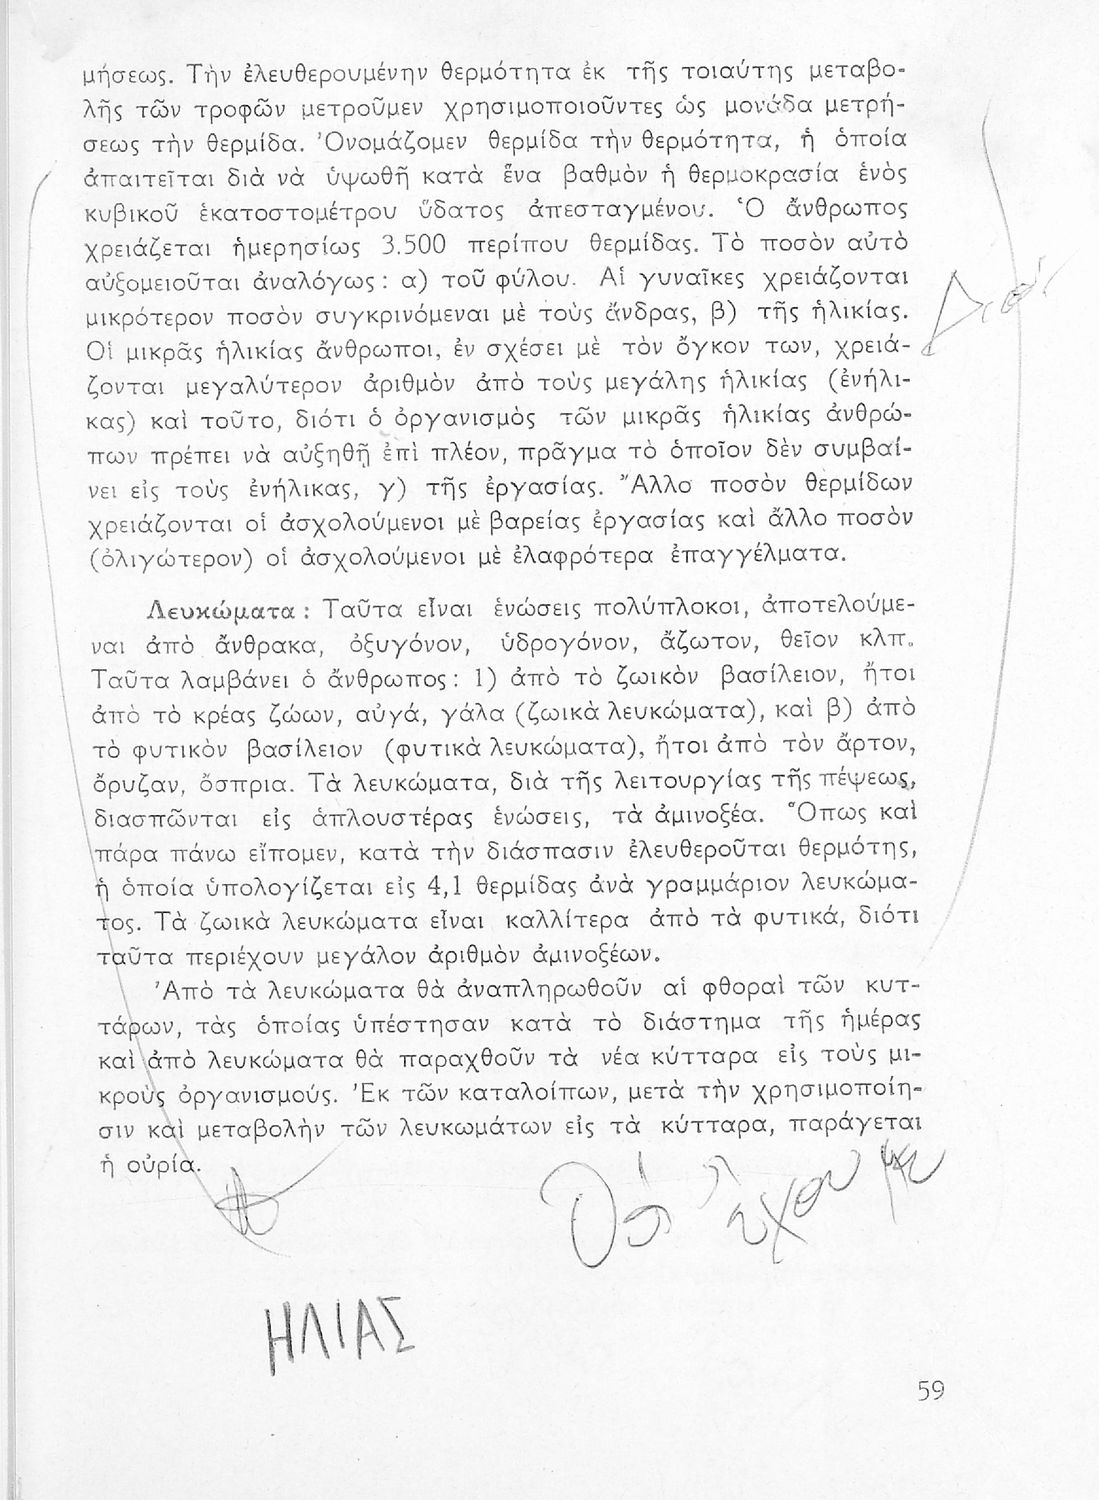 μήσεως. Τὴν ἐλευθερουμένην θερμότητα ἐκ τῆς τοιαύτης μεταβο-
λῆς τῶν τροφῶν μετροῦμεν χρησιμοποιοῦντες ὡς μονάδα μετρή-
σεως τὴν θερμίδα. Ὀνομάζομεν θερμίδα τὴν θερμότητα, ἡ ὁποία
ἀπαιτεῖται διὰ νὰ ὑψωθῇ κατὰ ἕνα βαθμὸν ἡ θερμοκρασία ἑνὸς
κυβικοῦ ἑκατοστομέτρου ὕδατος ἀπεσταγμένου. Ὁ ἄνθρωπος
χρειάζεται ἡμερησίως 3.500 περίπου θερμίδας. Τὸ ποσὸν αὐτὸ
αὐξομειοῦται ἀναλόγως: α) τοῦ φύλου. Αἱ γυναῖκες χρειάζονται
μικρότερον ποσὸν συγκρινόμεναι μὲ τοὺς ἄνδρας, β) τῆς ἡλικίας.
Οἱ μικρᾶς ἡλικίας ἄνθρωποι, ἐν σχέσει μὲ τὸν ὄγκον των, χρειά-
ζονται μεγαλύτερον ἀριθμὸν ἀπὸ τοὺς μεγάλης ἡλικίας (ἐνήλι-
κας) καὶ τοῦτο, διότι ὁ ὀργανισμὸς τῶν μικρᾶς ἡλικίας ἀνθρώ-
πων πρέπει νὰ αὐξηθῇ ἐπὶ πλέον, πρᾶγμα τὸ ὁποῖον δὲν συμβαί-
νει εἰς τοὺς ἐνήλικας, γ) τῆς ἐργασίας. Ἄλλο ποσὸν θερμίδων
χρειάζονται οἱ ἀσχολούμενοι μὲ βαρείας ἐργασίας καὶ ἄλλο ποσὸν
(ὀλιγώτερον) οἱ ἀσχολούμενοι μὲ ἐλαφρότερα ἐπαγγέλματα.
Λευκώματα: Ταῦτα εἶναι ἑνώσεις πολύπλοκοι, ἀποτελούμε-
ναι ἀπὸ ἄνθρακα, ὀξυγόνον, ὑδρογόνον, ἄζωτον, θεῖον κλπ.
Ταῦτα λαμβάνει ὁ ἄνθρωπος: 1) ἀπὸ τὸ ζωικὸν βασίλειον, ἤτοι
ἀπὸ τὸ κρέας ζώων, αὐγά, γάλα (ζωικὰ λευκώματα), καὶ β) ἀπὸ
τὸ φυτικὸν βασίλειον (φυτικὰ λευκώματα), ἤτοι ἀπὸ τὸν ἄρτον,
ὄρυζαν, ὄσπρια. Τὰ λευκώματα, διὰ τῆς λειτουργίας τῆς πέψεως,
διασπῶνται εἰς ἁπλουστέρας ἑνώσεις, τὰ ἀμινοξέα. Ὅπως καὶ
πάρα πάνω εἴπομεν, κατὰ τὴν διάσπασιν ἐλευθεροῦται θερμότης,
ἡ ὁποία ὑπολογίζεται εἰς 4,1 θερμίδας ἀνὰ γραμμάριον λευκώμα-
τος. Τὰ ζωικὰ λευκώματα εἶναι καλλίτερα ἀπὸ τὰ φυτικά, διότι
ταῦτα περιέχουν μεγάλον ἀριθμὸν ἀμινοξέων.
Ἀπὸ τὰ λευκώματα θὰ ἀναπληρωθοῦν αἱ φθοραὶ τῶν κυτ-
τάρων, τὰς ὁποίας ὑπέστησαν κατὰ τὸ διάστημα τῆς ἡμέρας
καὶ ἀπὸ λευκώματα θὰ παραχθοῦν τὰ νέα κύτταρα εἰς τοὺς μι-
κροὺς ὀργανισμούς. Ἐκ τῶν καταλοίπων, μετὰ τὴν χρησιμοποίη-
σιν καὶ μεταβολὴν τῶν λευκωμάτων εἰς τὰ κύτταρα, παράγεται
ἡ οὐρία.
ΗΛΙΑΣ
59